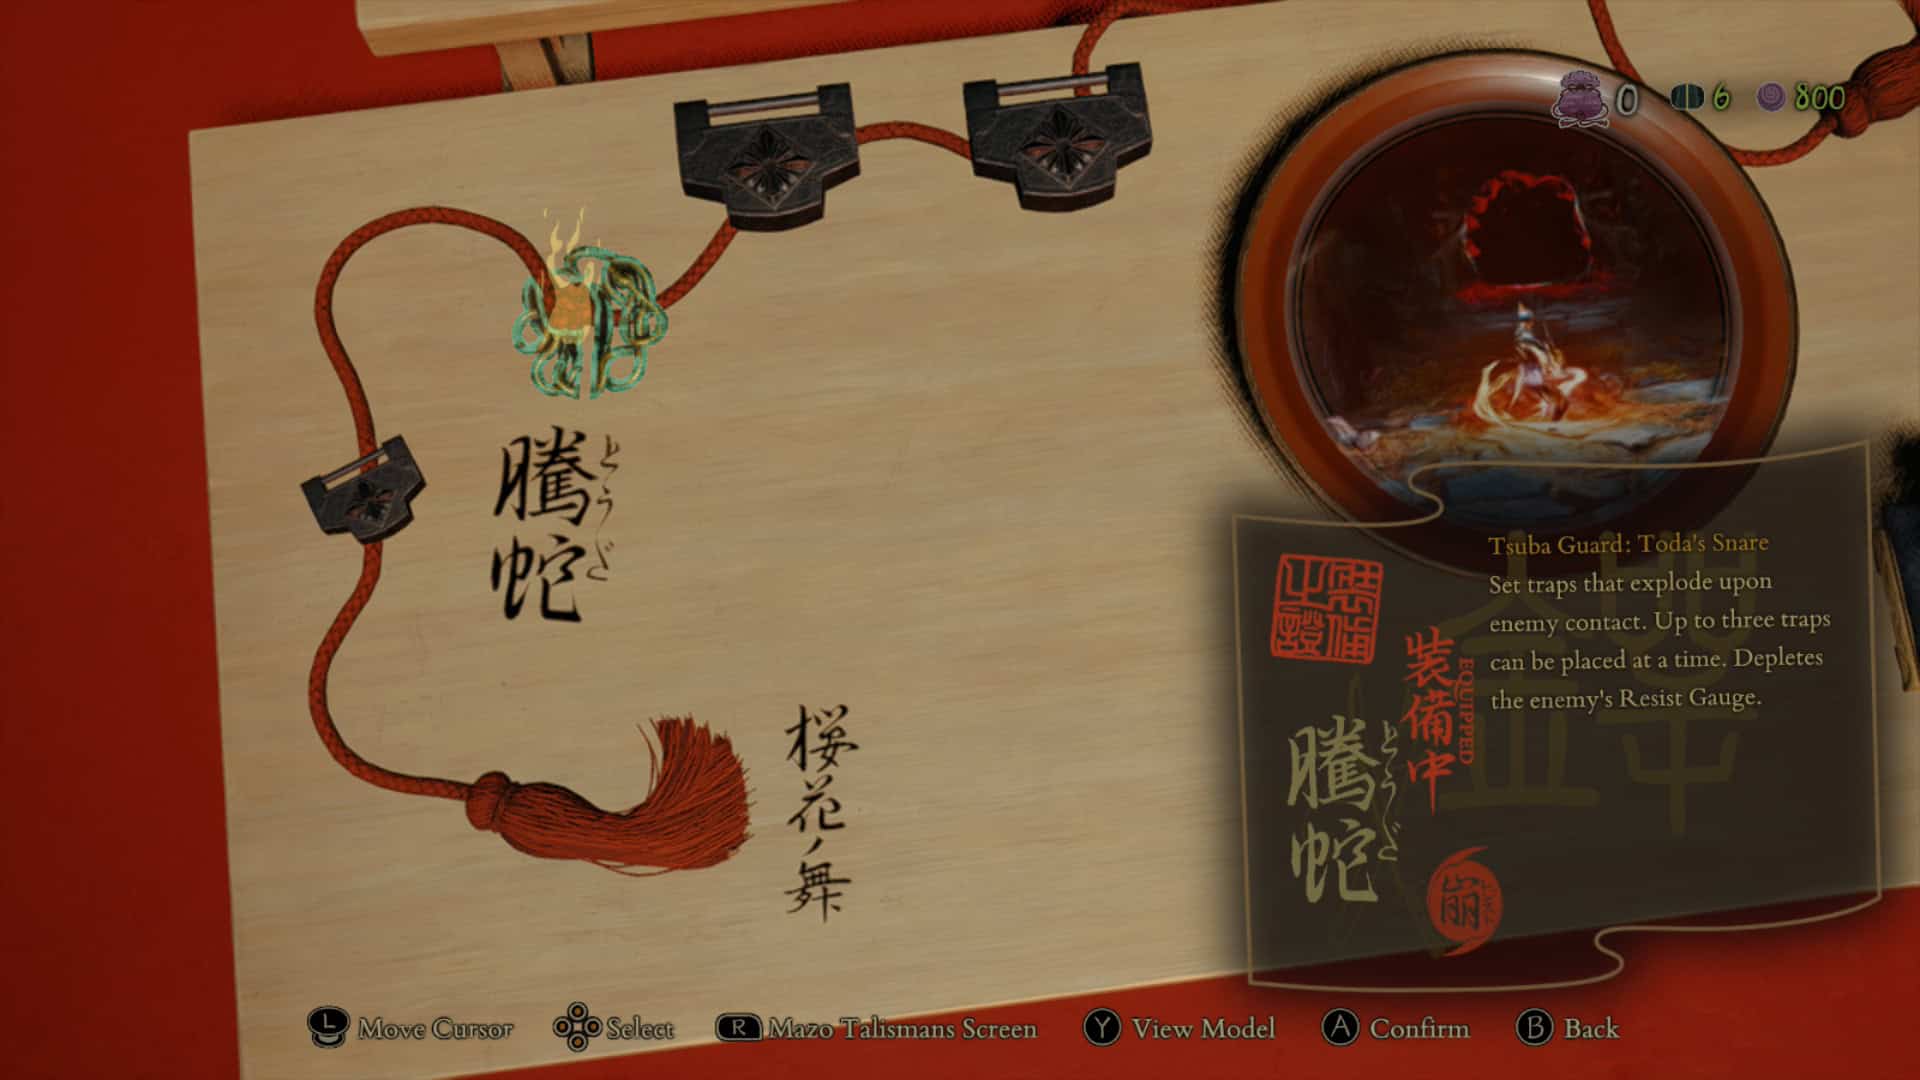 0 6 800
騰蛇
とうだ
桜花ノ舞
Tsuba Guard: Toda's Snare
Set traps that explode upon
enemy contact. Up to three traps
can be placed at a time. Depletes
the enemy's Resist Gauge.
装備之證
装備中
EQUIPPED
騰蛇
とうだ
崩
L Move Cursor
Select
R Mazo Talismans Screen
Y View Model
A Confirm
B Back